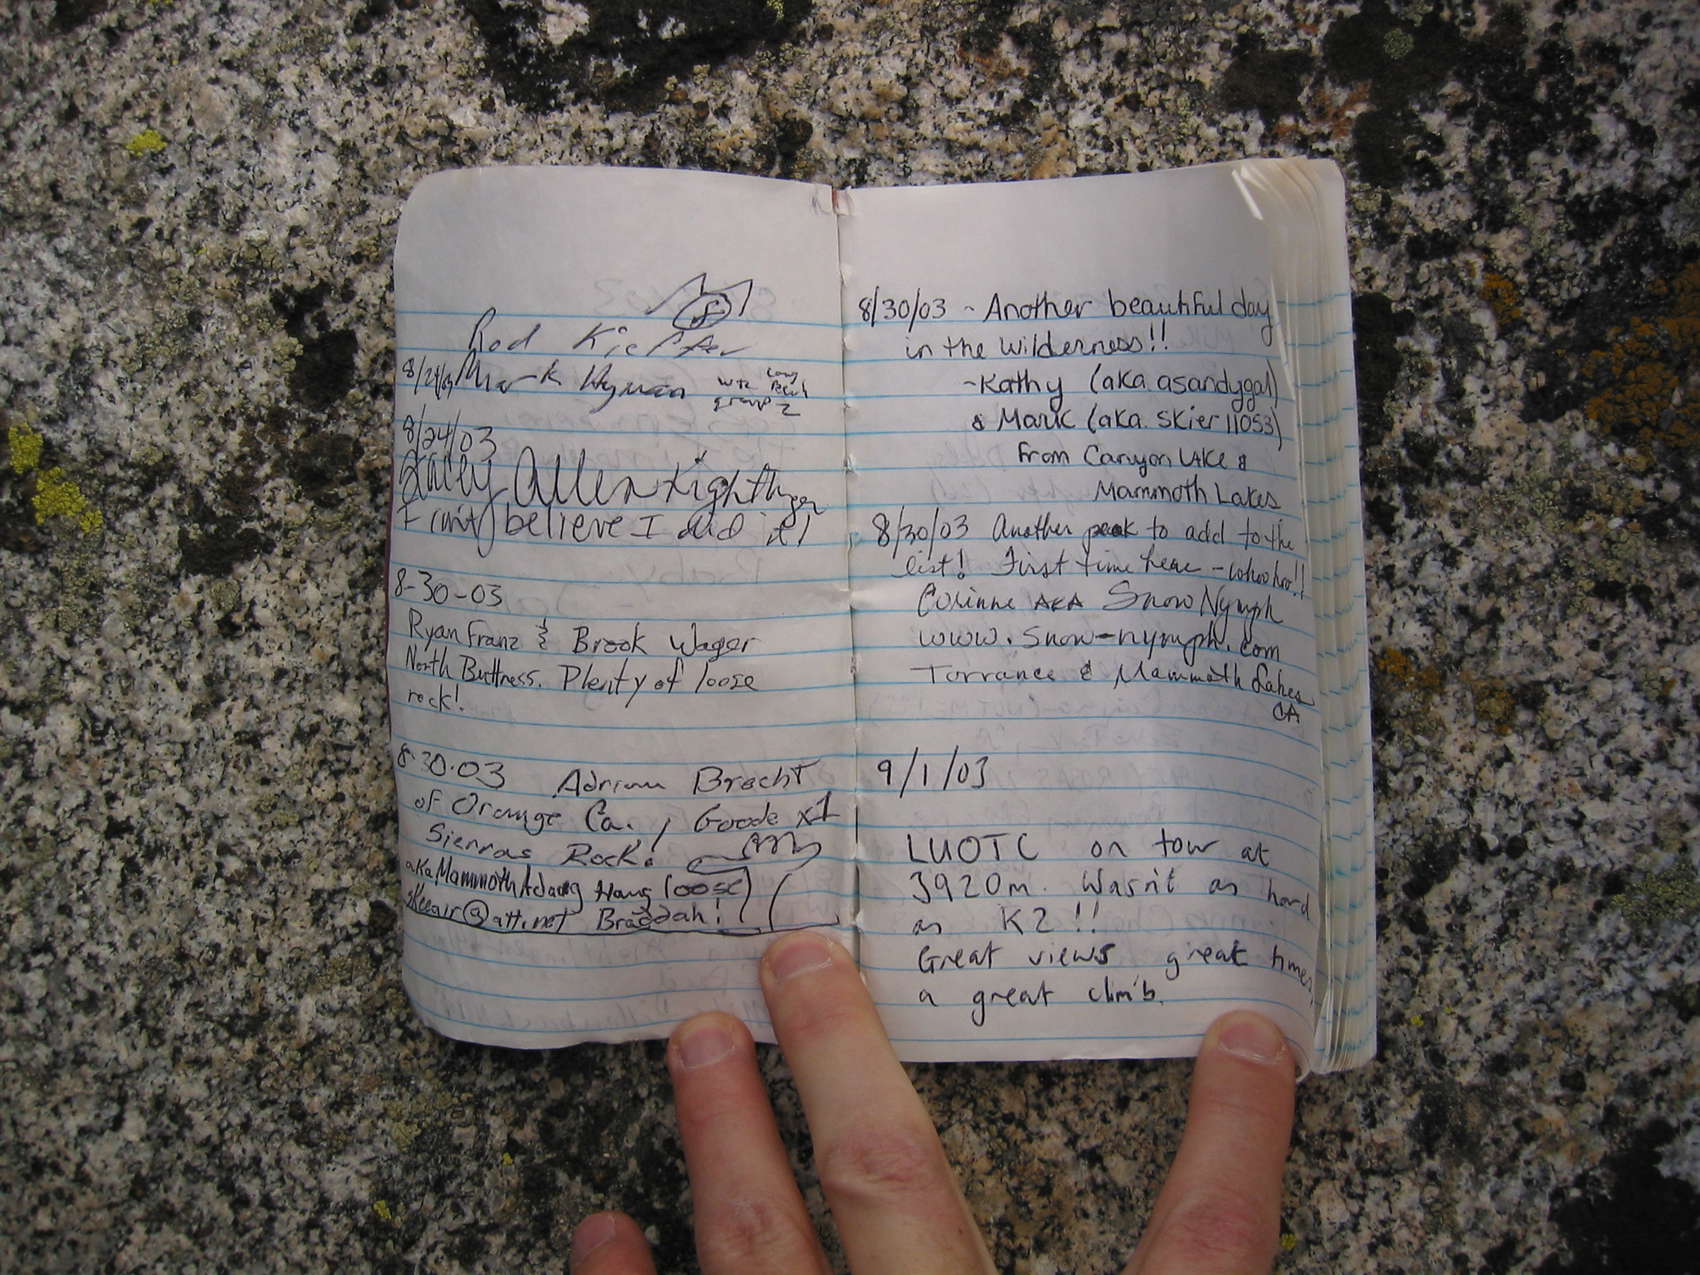 Rod Kieffer
8/24/03 Mark Hyman WTC Long
Beach
group 2
8/24/03
Allen
I can't believe I did it!
8-30-03
Ryan Franz & Brook Wager
North Buttress. Plenty of loose
rock!
8·30·03 Adrian Brecht
of Orange Ca., Goode x1
Sierras Rock!
aka MammothAdamg Hang loose
skeeair@att.net Braddah!
8/30/03 - Another beautiful day
in the wilderness!!
-Kathy (aka asandygal)
& Mark (aka. Skier11053)
from Canyon Lake &
Mammoth Lakes
8/30/03 Another peak to add to the
list! First time here - whoo hoo!!
Corinne AKA SnowNymph
www.snow-nymph.com
Torrance & Mammoth Lakes
CA
9/1/03
LUOTC on tour at
3920m. Wasn't as hard
as K2!!
Great views, great times,
a great climb.